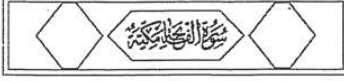 سُورَةُ الْفَاتِحَةِ مَكِّيَّةٌ